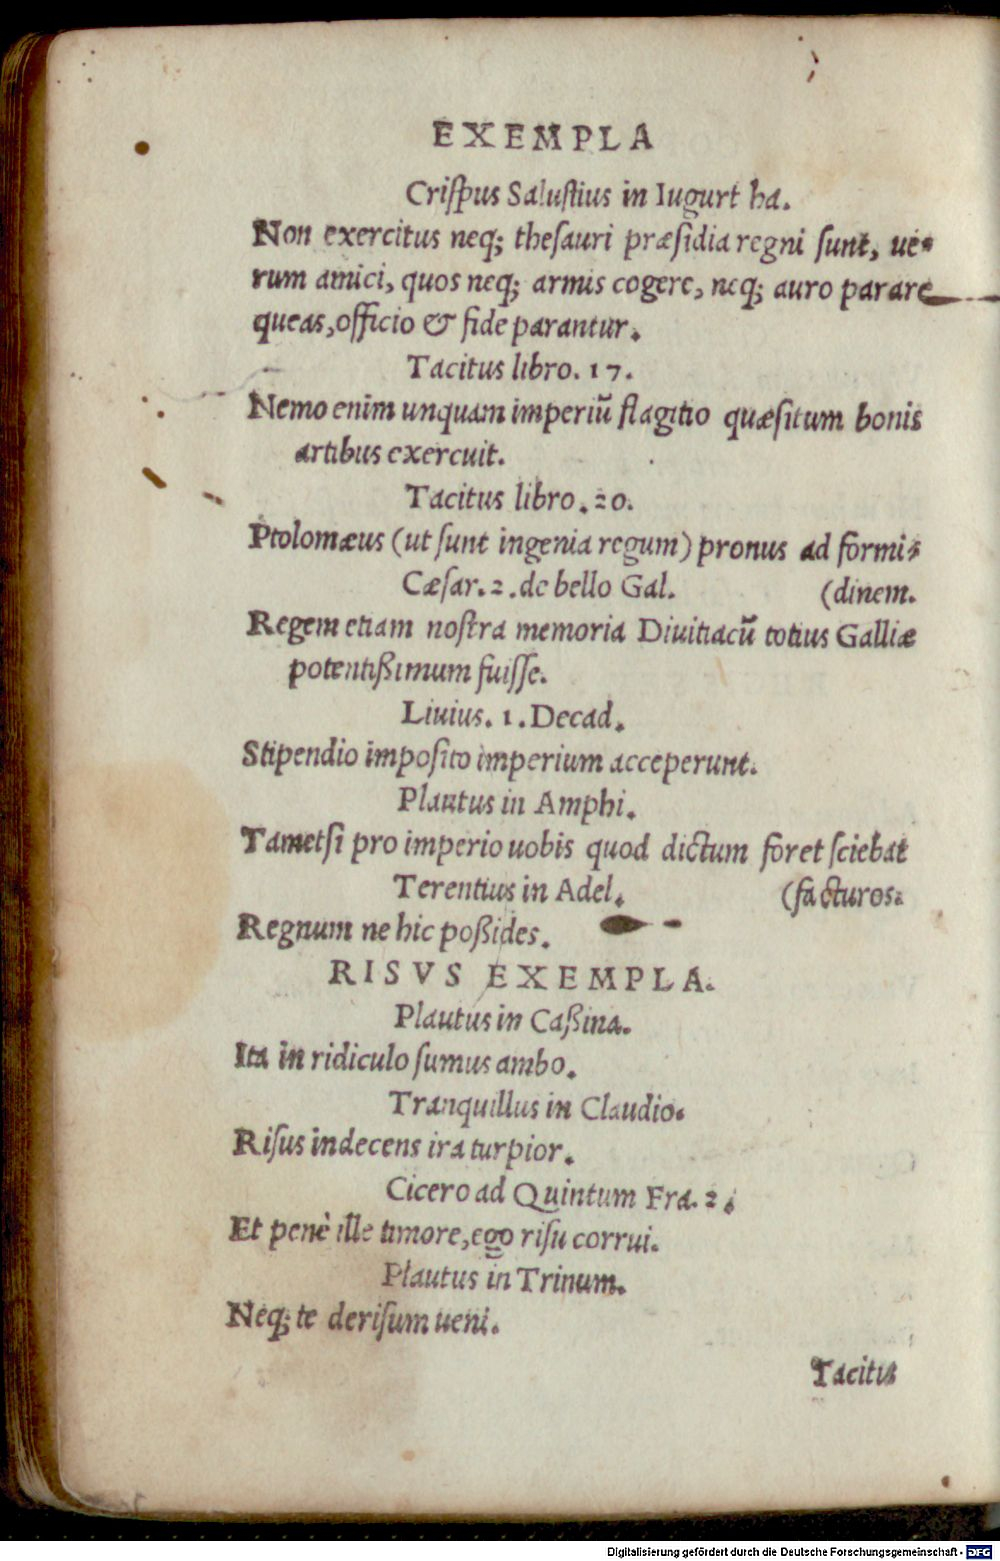 EXEMPLA
Criſpus Saluſtius in Iugurt ha.
Non exercitus neq; theſauri præſidia regni ſunt, ue-
rum amici, quos neq; armis cogere, neq; auro parare
queas, officio & fide parantur.
Tacitus libro. 17.
Nemo enim unquam imperiū flagitio quæſitum bonis
artibus exercuit.
Tacitus libro. 20.
Ptolomæus (ut ſunt ingenia regum) pronus ad formi-
Cæſar. 2. de bello Gal. (dinem.
Regem etiam noſtra memoria Diuitiacū totius Galliæ
potentißimum fuiſſe.
Liuius. 1. Decad.
Stipendio impoſito imperium acceperunt.
Plautus in Amphi.
Tametſi pro imperio uobis quod dictum foret ſciebat
Terentius in Adel. (facturos.
Regnum ne hic poßides.
RISVS EXEMPLA.
Plautus in Caßina.
Ita in ridiculo ſumus ambo.
Tranquillus in Claudio.
Riſus indecens ira turpior.
Cicero ad Quintum Fra. 2.
Et penè ille timore, ego riſu corrui.
Plautus in Trinum.
Neq; te deriſum ueni.
Tacitus
Digitalisierung gefördert durch die Deutsche Forschungsgemeinschaft - DFG